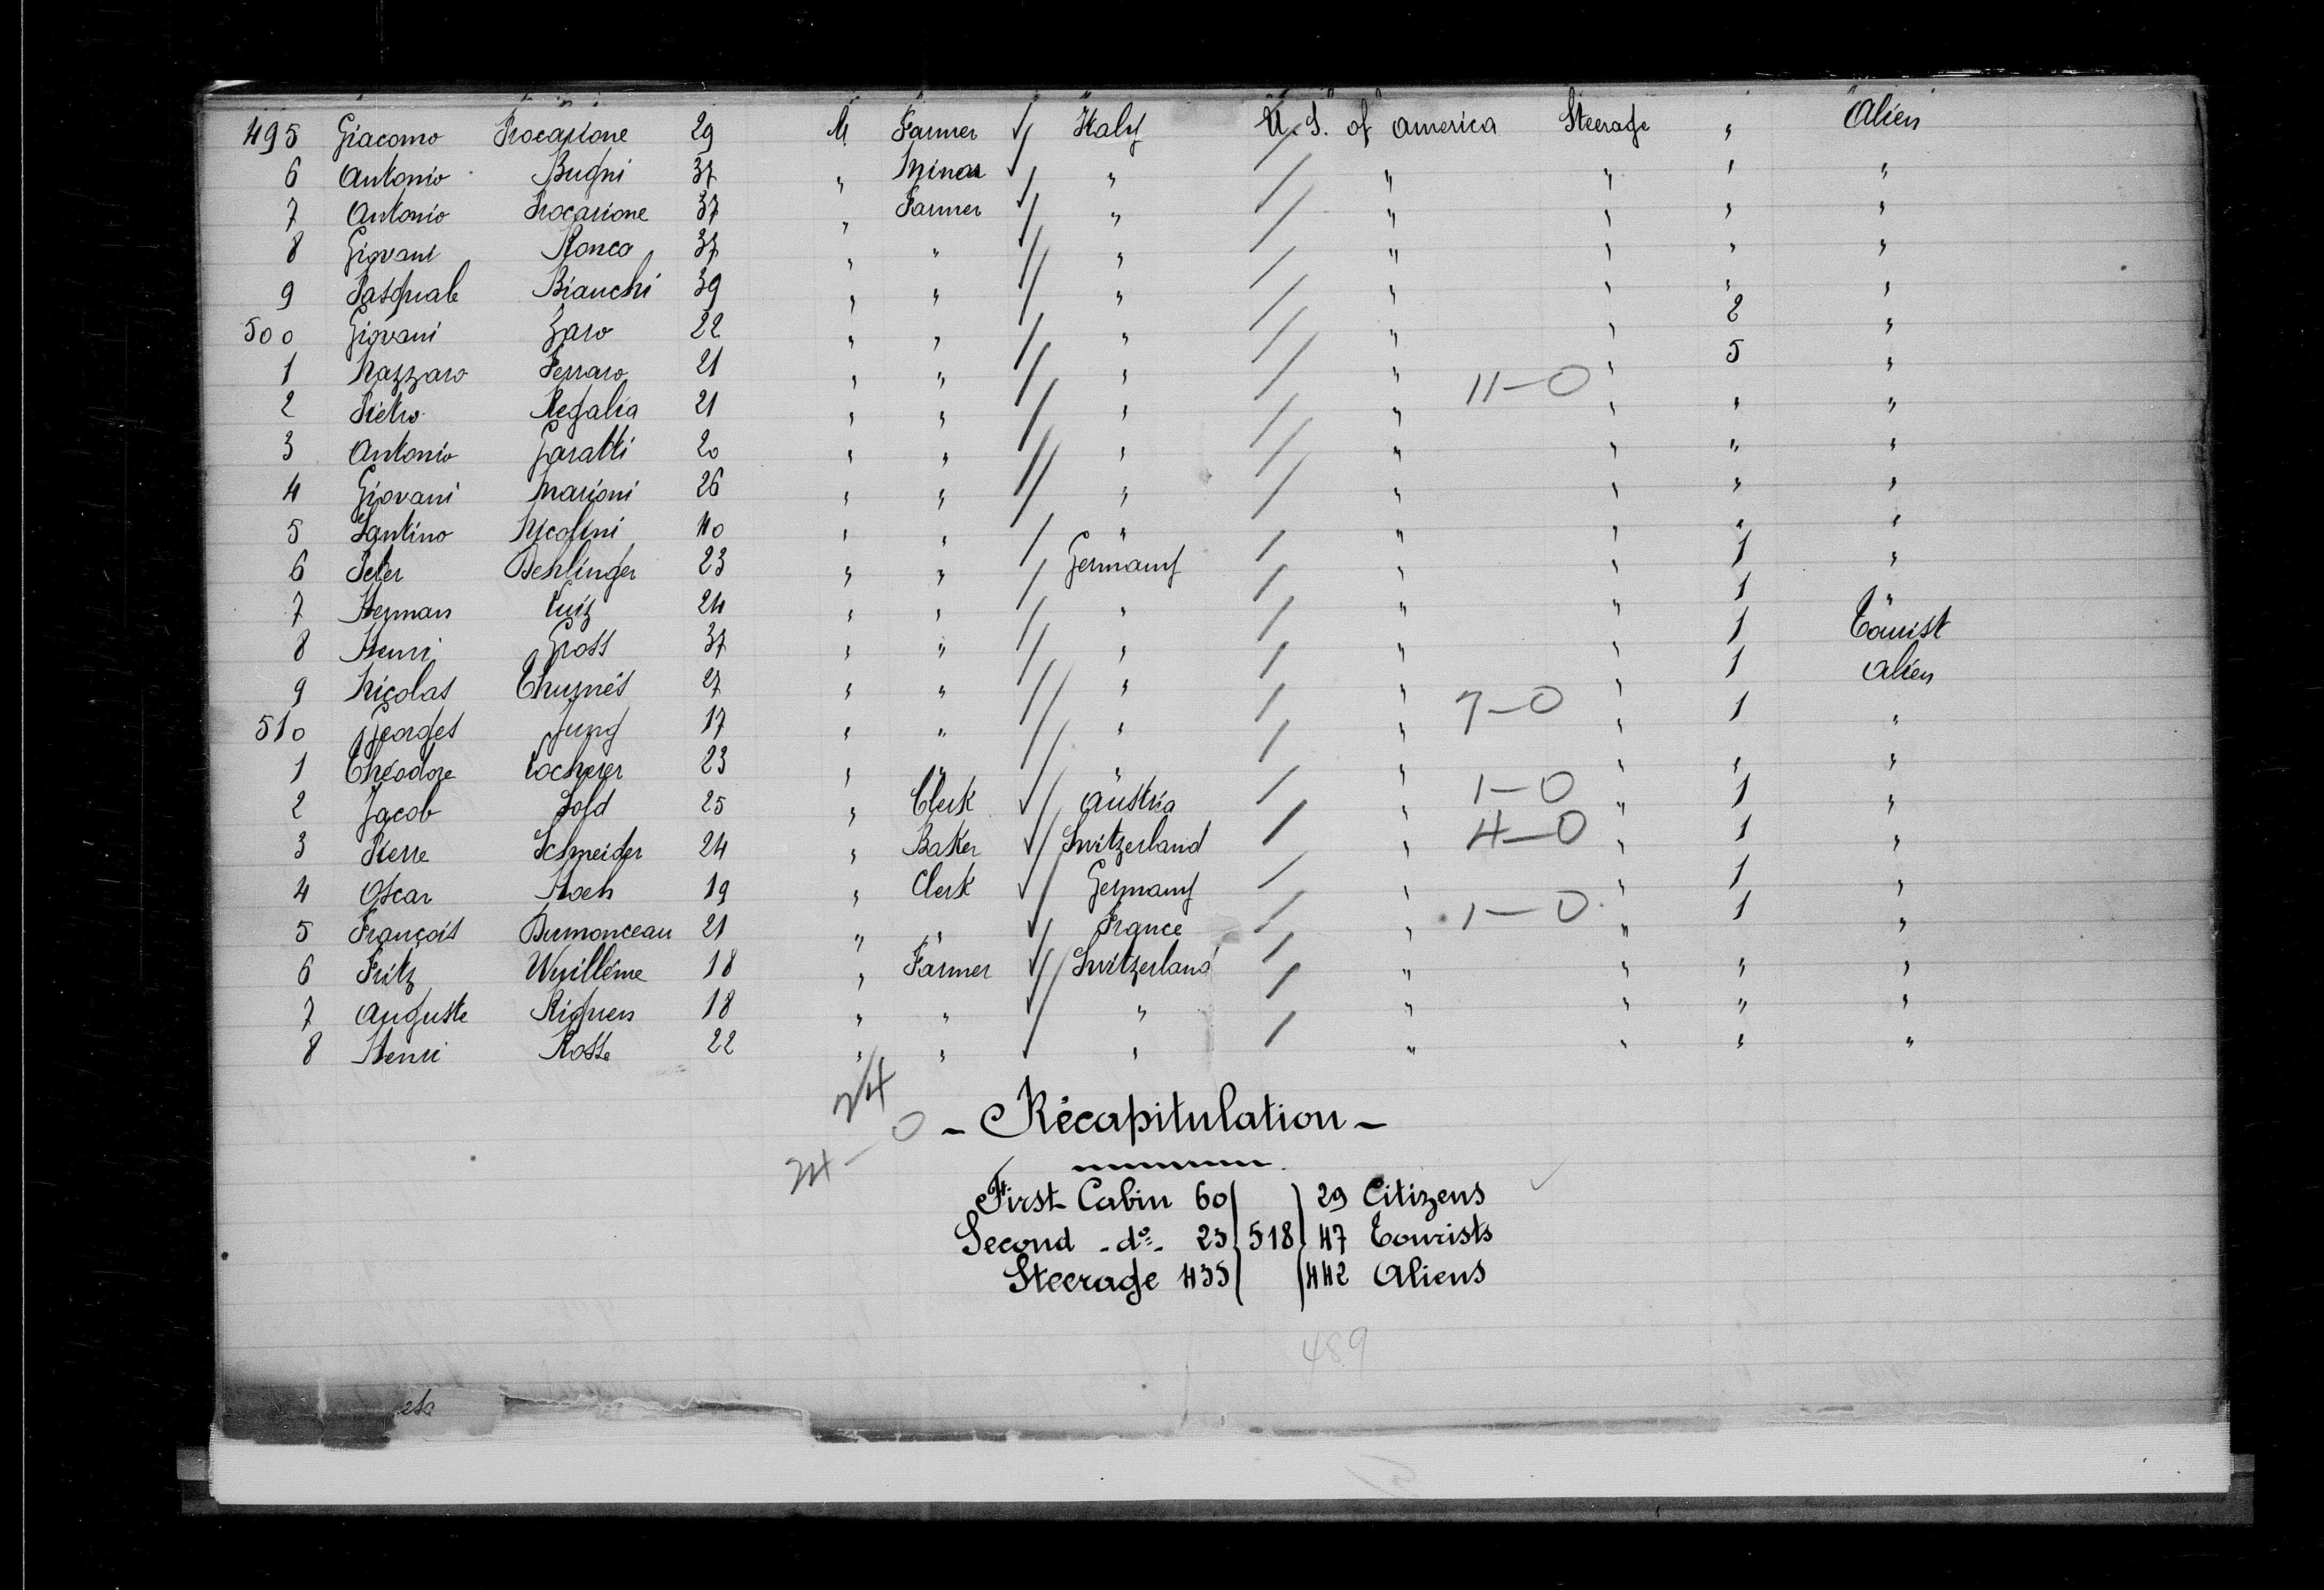 495 Giacomo Procarione 29 M Farmer Italy U. S. of America Steerage " Alien
6 Antonio Bugni 37 " Minor " " " " "
7 Antonio Procarione 37 " Farmer " " " " "
8 Giovani Ronco 37 " " " " " " "
9 Pasquale Bianchi 39 " " " " " " "
500 Giovani Zaro 22 " " " " " 2 "
1 Nazzaro Ferraro 21 " " " " 11-0 " 5 "
2 Pietro Regalia 21 " " " " " " "
3 Antonio Garatti 20 " " " " " " "
4 Giovani Marioni 26 " " " " " " "
5 Santino Nicolini 40 " " " " " " "
6 Peter Dehlinger 23 " " Germany " " 1 "
7 Herman Luiz 24 " " " " " 1 "
8 Henri Gross 37 " " " " " 1 Tourist
9 Nicolas Thurnés 27 " " " " " 1 Alien
510 Georges Jung 17 " " " " 7-0 " 1 "
1 Théodore Locherer 23 " " " " " " "
2 Jacob Sold 25 " Clerk Austria " 1-0 " 1 "
3 Pierre Schneider 24 " Baker Switzerland " 4-0 " 1 "
4 Oscar Hoeh 19 " Clerk Germany " " 1 "
5 François Dumonceau 21 " " France " 1-0 " 1 "
6 Fritz Wuilléme 18 " Farmer Switzerland " " " "
7 Auguste Riquen 18 " " " " " " "
8 Henri Rosse 22 " " " " " " "
24
24-0
- Récapitulation -
First Cabin 60 29 Citizens
Second -do- 23 518 47 Tourists
Steerage 435 442 Aliens
489